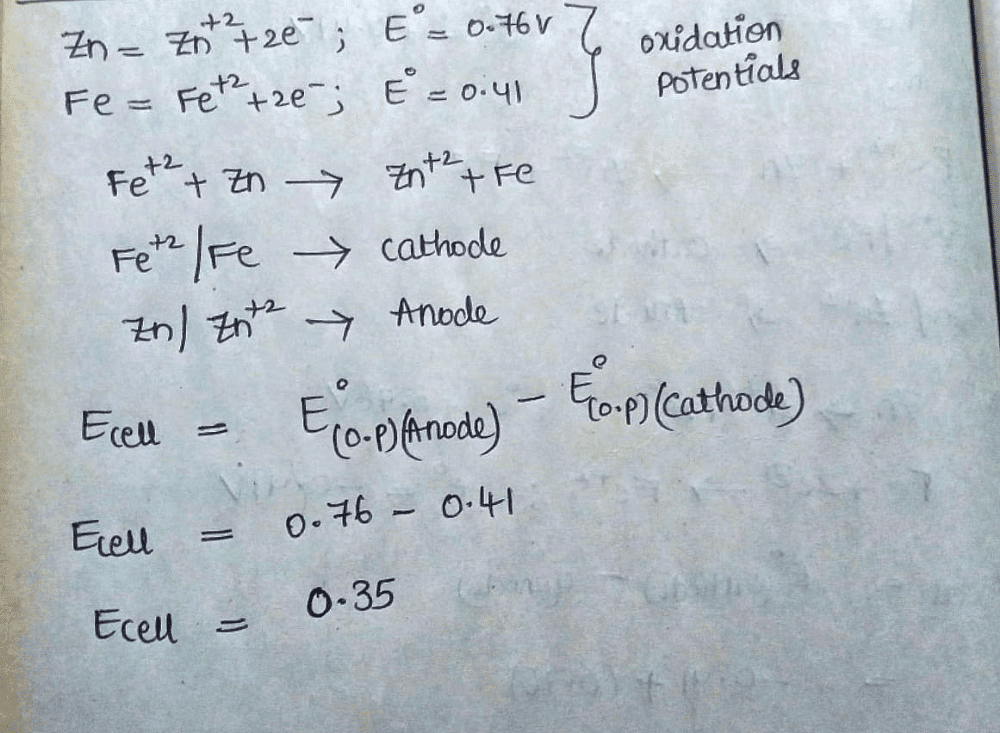 Zn = Zn⁺² + 2e⁻ ; E° = 0.76 V } oxidation
Fe = Fe⁺² + 2e⁻ ; E° = 0.41 potentials
Fe⁺² + Zn → Zn⁺² + Fe
Fe⁺² | Fe → cathode
Zn | Zn⁺² → Anode
Ecell = E°(O.P)(Anode) - E°(O.P)(Cathode)
Ecell = 0.76 - 0.41
Ecell = 0.35